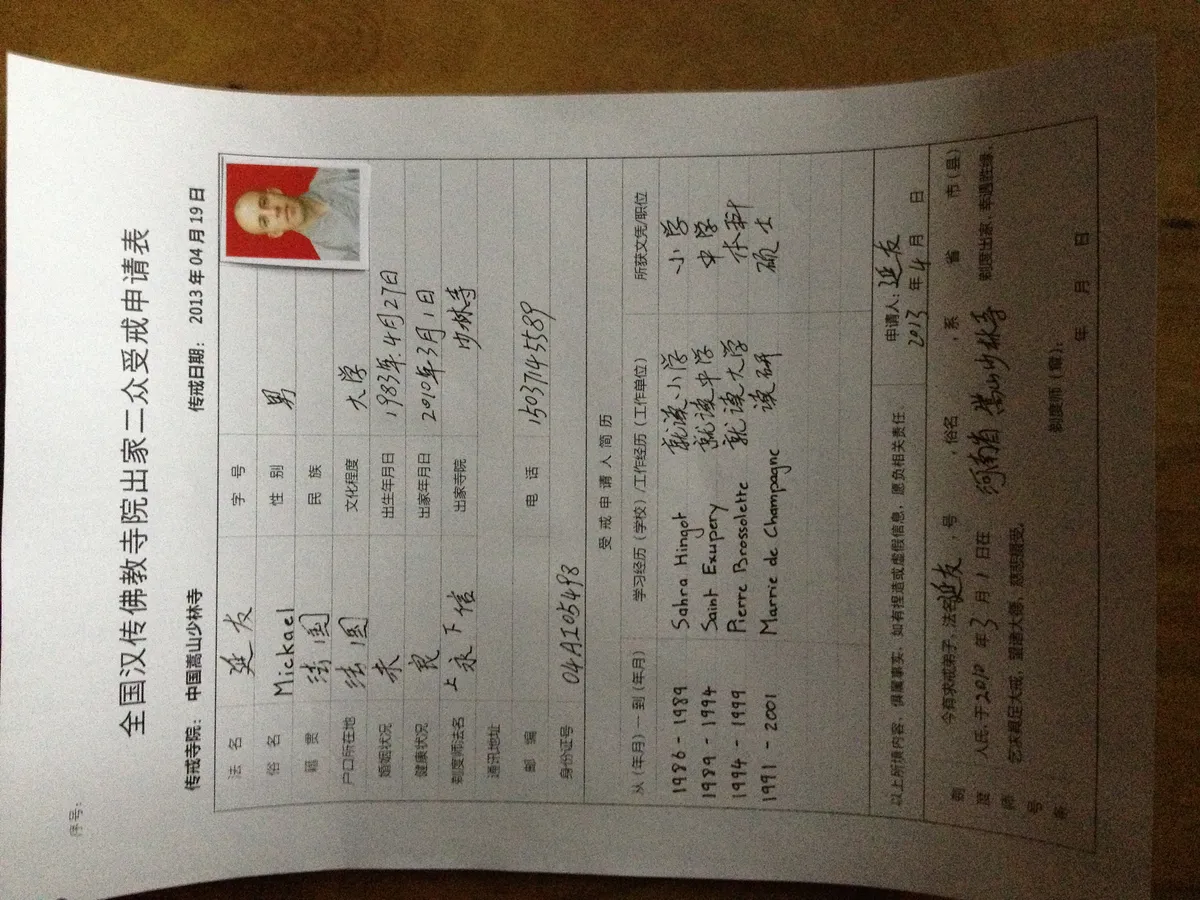 序号：
全国汉传佛教寺院出家二众受戒申请表
传戒寺院： 中国嵩山少林寺 传戒日期： 2013年04月19日
法名 延友 字号
俗名 Mickael 性别 男
籍贯 法国 民族
户口所在地 法国 文化程度 大学
婚姻状况 未 出生年月日 1983年.4月27日
健康状况 良 出家年月日 2010年3月1日
剃度师法名 上永下信 出家寺院 少林寺
通讯地址
邮编 电话 15037145589
身份证号 04AI05498
受戒申请人简历
从（年月）一到（年月） 学习经历（学校）/工作经历（工作单位） 所获文凭/职位
1986 - 1989 Sahra Hingot 就读小学 小学
1989 - 1994 Saint Exupery 就读中学 中学
1994 - 1999 Pierre Brossolette 就读大学 本科
1991 - 2001 Marrie de Champagne 读研 硕士
以上所填内容，俱属事实，如有捏造或虚假信息，愿负相关责任。 申请人：延友
2013年4月 日
剃度师号条 今有求戒弟子，法名延友，号 ，俗名 ，系 省 市（县）
人氏，于2010年3月1日在 河南省嵩山少林寺 剃度出家，幸遇胜缘，
乞求具足大戒，望诸大德，慈悲摄受。
剃度师（章）：
年 月 日